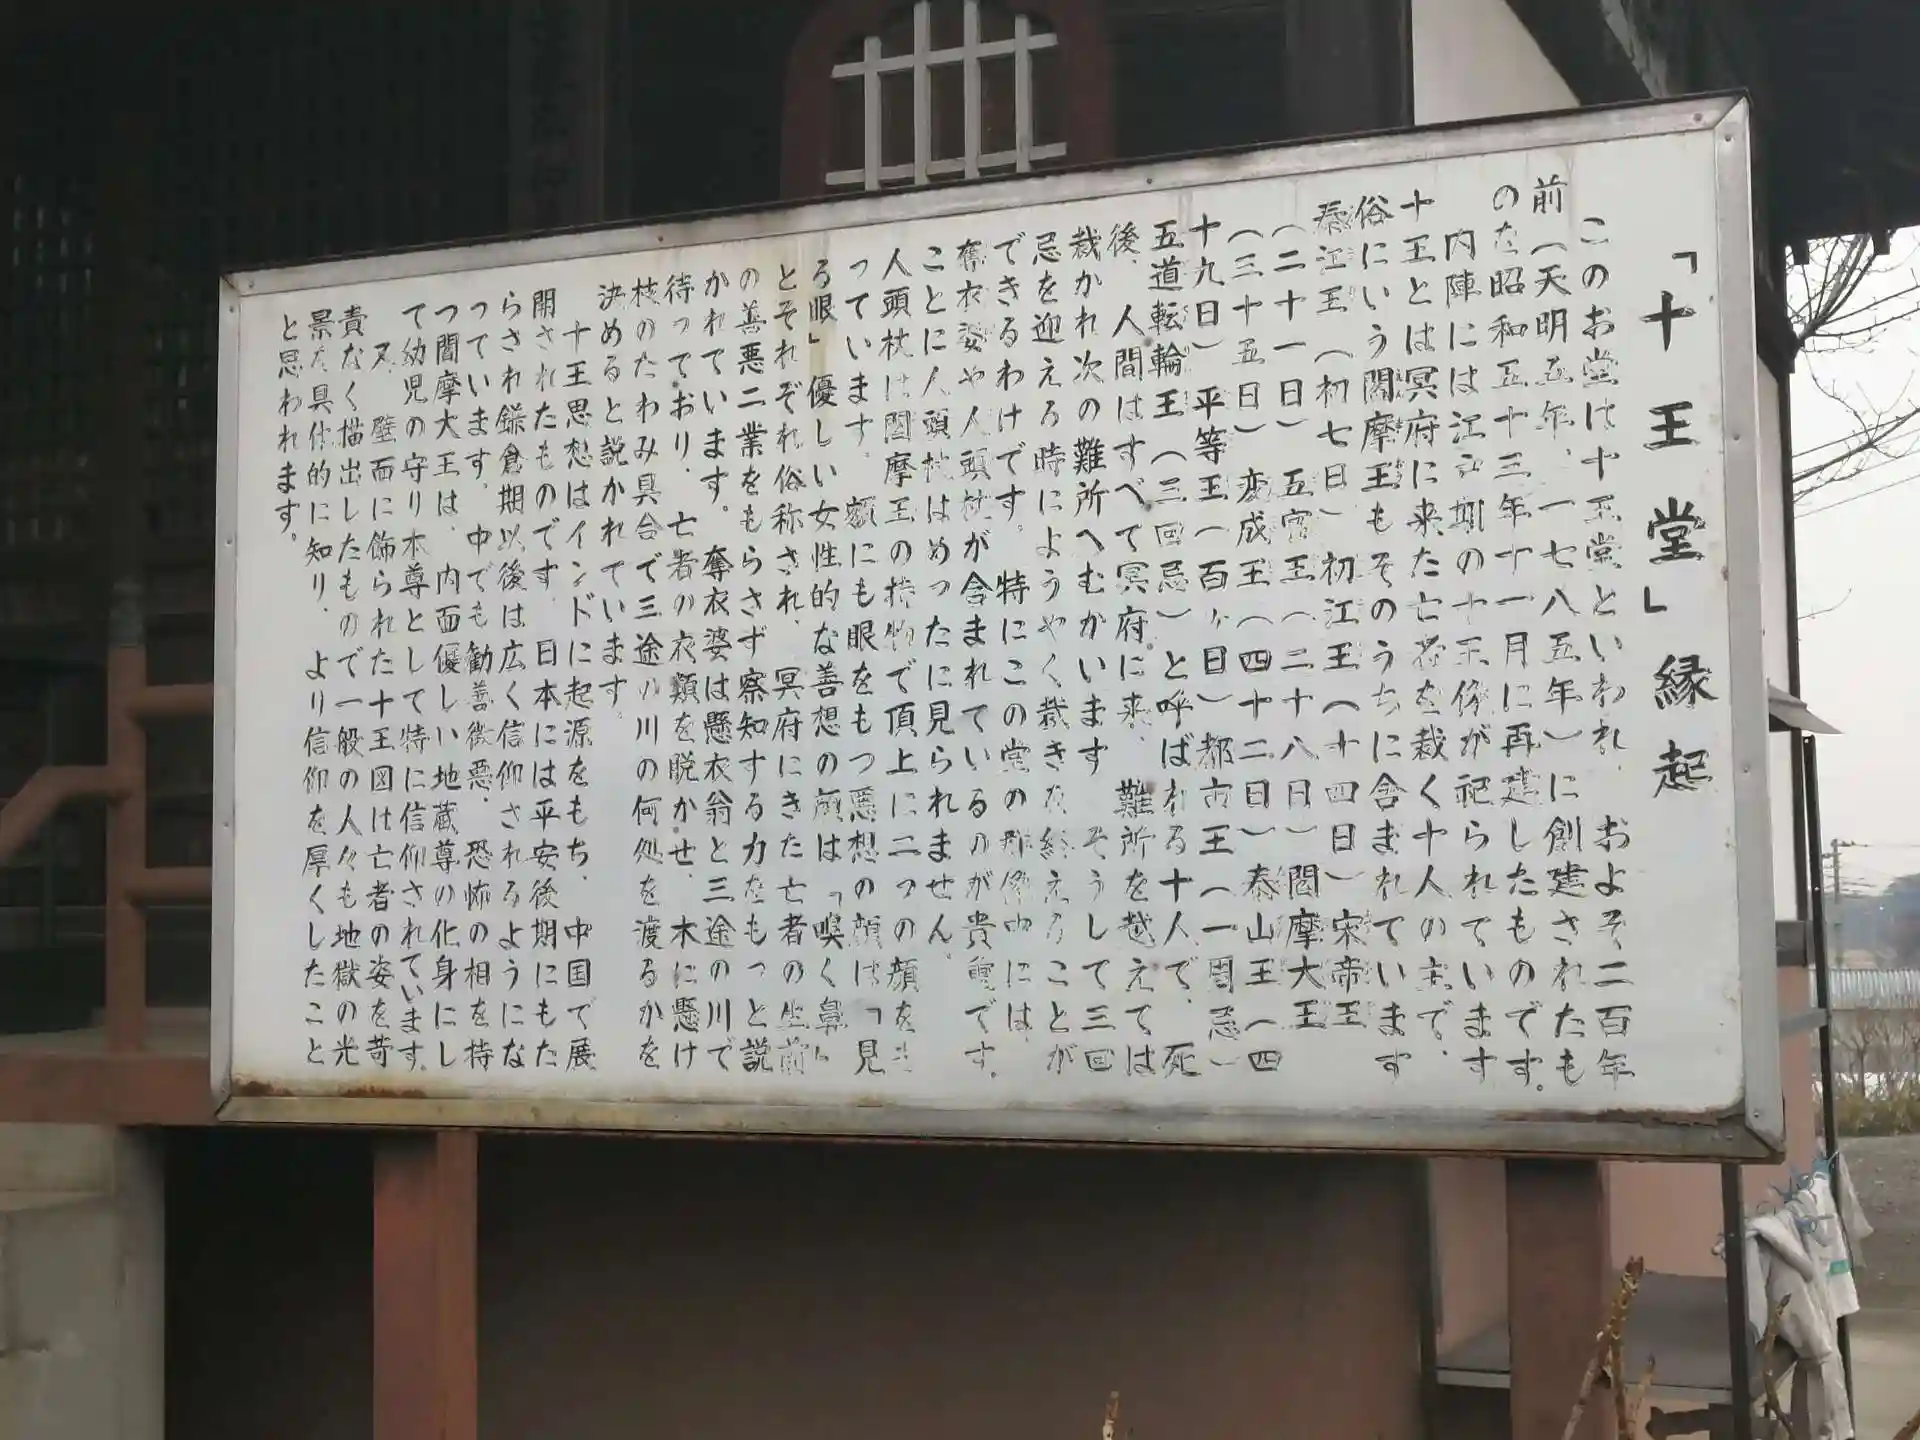 「十王堂」縁起
このお堂は十王堂といわれ、およそ二百年
前(天明五年、一七八五年)に創建されたも
のを昭和五十三年十一月に再建したものです。
内陣には江戸期の十王像が祀られています
十王とは冥府に来た亡者を裁く十人の主で、
俗にいう閻摩王もそのうちに含まれています
秦江王(初七日)初江王(十四日)宋帝王
(二十一日)五官王(二十八日)閻摩大王
(三十五日)変成王(四十二日)泰山王(四
十九日)平等王(百ヶ日)都市王(一周忌)
五道転輪王(三回忌)と呼ばれる十人で、死
後、人間はすべて冥府に来、難所を越えては
裁かれ次の難所へむかいます そうして三回
忌を迎える時にようやく裁きを終えることが
できるわけです。特にこの堂の群像中には、
奪衣婆や人頭杖が含まれているのが貴重です。
ことに人頭杖はめったに見られません。
人頭杖は閻摩王の持物で頂上に二つの顔をも
っています。額にも眼をもつ悪想の顔は「見
る眼」優しい女性的な善想の顔は「嗅く鼻」
とそれぞれ俗称され、冥府にきた亡者の生前
の善悪二業をもらさず察知する力をもつと説
かれています。奪衣婆は懸衣翁と三途の川で
待っており、亡者の衣類を脱かせ、木に懸け
枝のたわみ具合で三途の川の何処を渡るかを
決めると説かれています。
十王思想はインドに起源をもち、中国で展
開されたものです。日本には平安後期にもた
らされ鎌倉期以後は広く信仰されるようにな
っています。中でも勧善懲悪、恐怖の相を持
つ閻摩大王は、内面優しい地蔵尊の化身にし
て幼児の守り本尊として特に信仰されています。
又、壁面に飾られた十王図は亡者の姿を苛
責なく描出したもので一般の人々も地獄の光
景を具体的に知り、より信仰を厚くしたこと
と思われます。